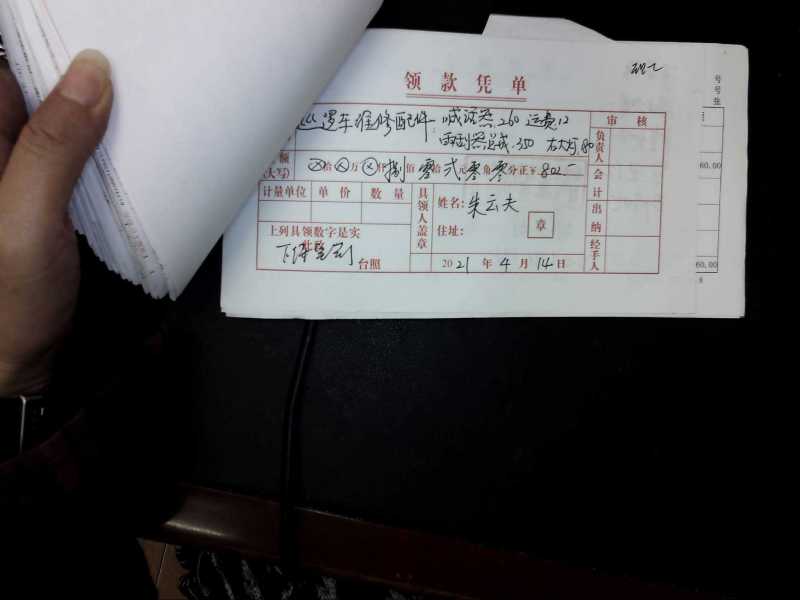 领款凭单
巡逻车维修配件: 喊话器260 运费12 审核
雨刮器总成.350 右大灯 80 负责人
额(大写) ⊗拾⊗万⊗仟捌佰零拾贰元零角零分正¥:802.— 会计
计量单位 单价 数量 具领人盖章 姓名:朱云夫 出纳
上列具领数字是实 住址: 章
此致
台照 2021年4月14日 经手人
号
号
张
60.00
60.00